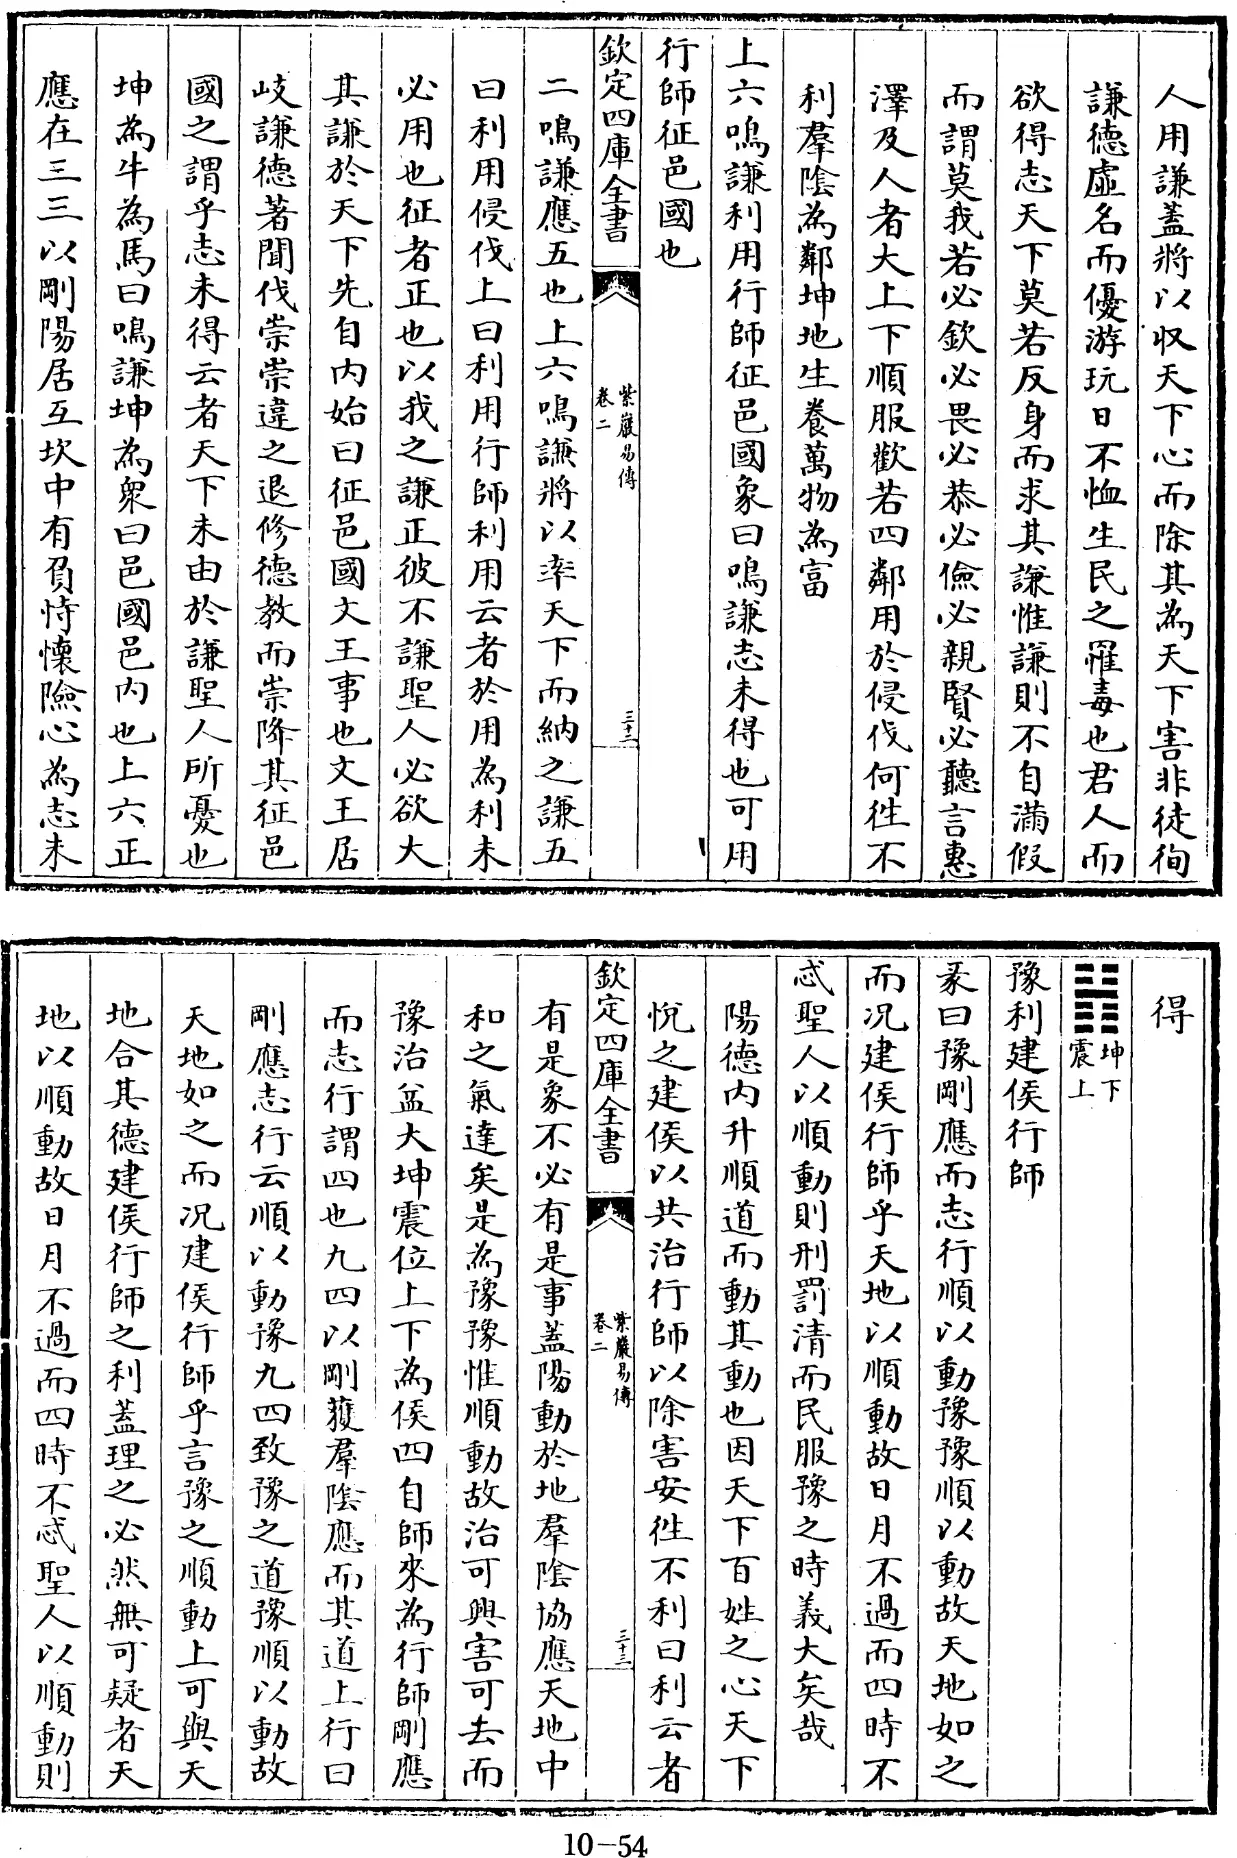 人用謙蓋將以收天下心而除其為天下害非徒徇
謙德虛名而優游玩日不恤生民之罹毒也君人而
欲得志天下莫若反身而求其謙惟謙則不自滿假
而謂莫我若必欽必畏必恭必儉必親賢必聽言惠
澤及人者大上下順服歡若四鄰用於侵伐何徃不
利羣陰為鄰坤地生養萬物為富
上六鳴謙利用行師征邑國象曰鳴謙志未得也可用
行師征邑國也
欽定四庫全書
紫巖易傳
卷二
三十二
二鳴謙應五也上六鳴謙將以率天下而納之謙五
曰利用侵伐上曰利用行師利用云者於用為利未
必用也征者正也以我之謙正彼不謙聖人必欲大
其謙於天下先自内始曰征邑國文王事也文王居
岐謙德著聞伐崇崇違之退修德教而崇降其征邑
國之謂乎志未得云者天下未由於謙聖人所憂也
坤為牛為馬曰鳴謙坤為衆曰邑國邑内也上六正
應在三三以剛陽居互坎中有負恃懷險心為志未
得
䷏坤下
震上
豫利建侯行師
彖曰豫剛應而志行順以動豫豫順以動故天地如之
而况建侯行師乎天地以順動故日月不過而四時不
忒聖人以順動則刑罰清而民服豫之時義大矣哉
陽德内升順道而動其動也因天下百姓之心天下
悅之建侯以共治行師以除害安徃不利曰利云者
欽定四庫全書
紫巖易傳
卷二
三十三
有是象不必有是事蓋陽動於地羣陰協應天地中
和之氣達矣是為豫豫惟順動故治可興害可去而
豫治益大坤震位上下為侯四自師來為行師剛應
而志行謂四也九四以剛獲羣陰應而其道上行曰
剛應志行云順以動豫九四致豫之道豫順以動故
天地如之而况建侯行師乎言豫之順動上可與天
地合其德建侯行師之利蓋理之必然無可疑者天
地以順動故日月不過而四時不忒聖人以順動則
10-54